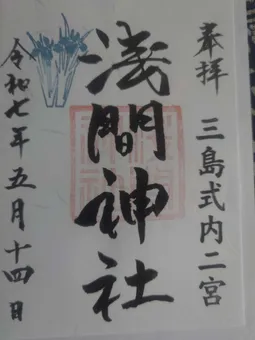 奉拝
三島式内二宮
浅間神社
令和七年五月十四日